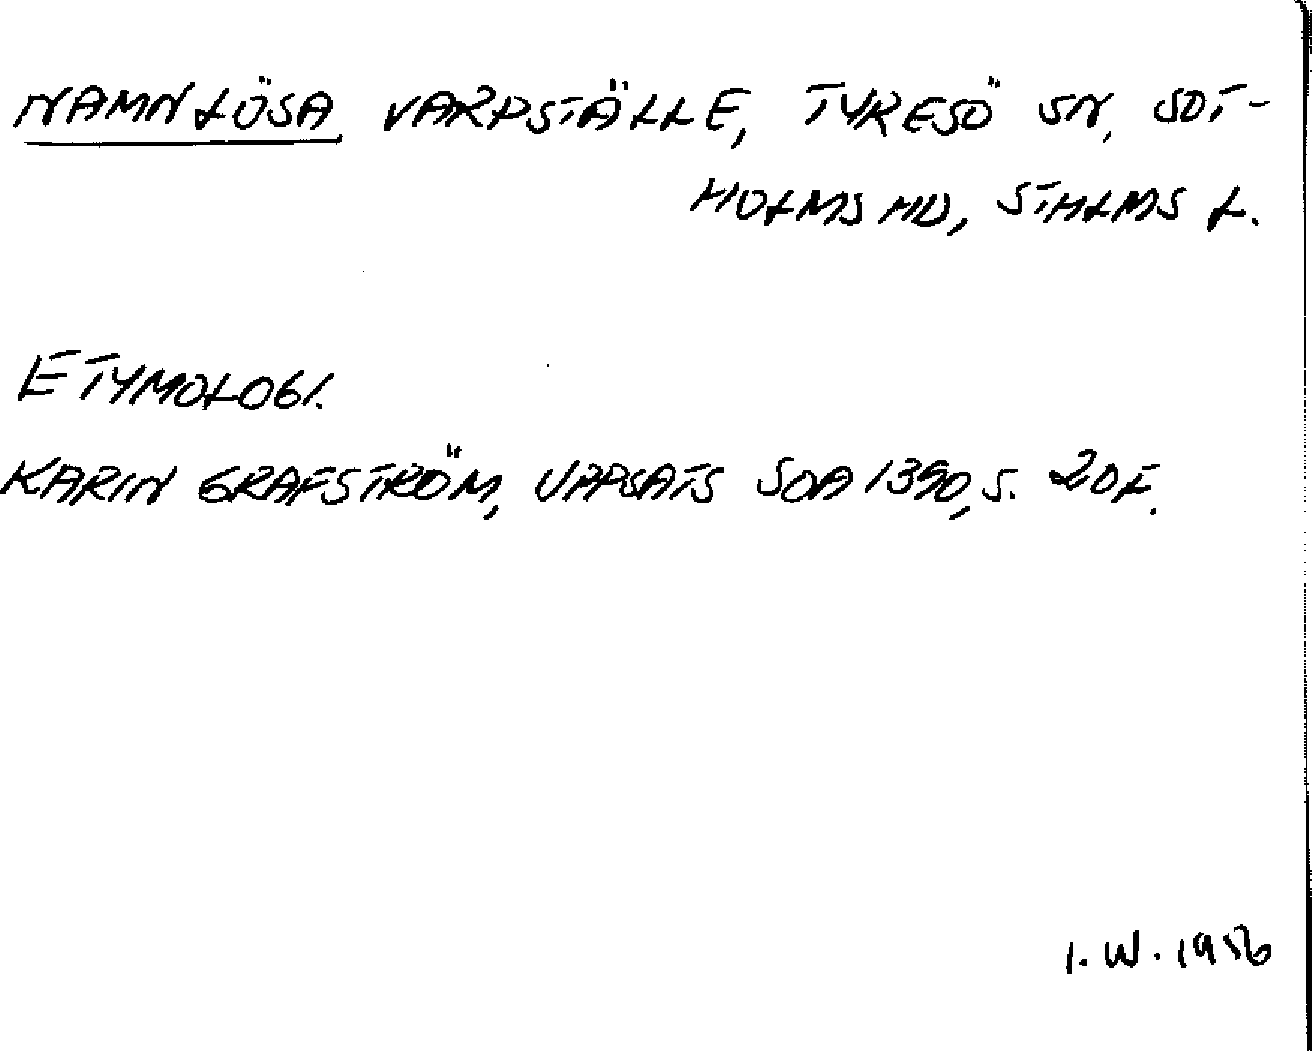 NAMNLÖSA, VARPSTÄLLE, TYRESÖ SN, SOT-
HOLMS HD, STHLMS L.
ETYMOLOGI.
KARIN GRAFSTRÖM, UPPSATS SOA 1390, S. 20 F.
I. W. 1986